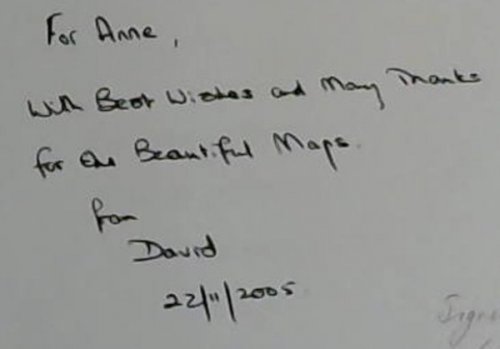 For Anne,
With Best Wishes and Many Thanks
for the Beautiful Maps.
from
David
22/11/2005